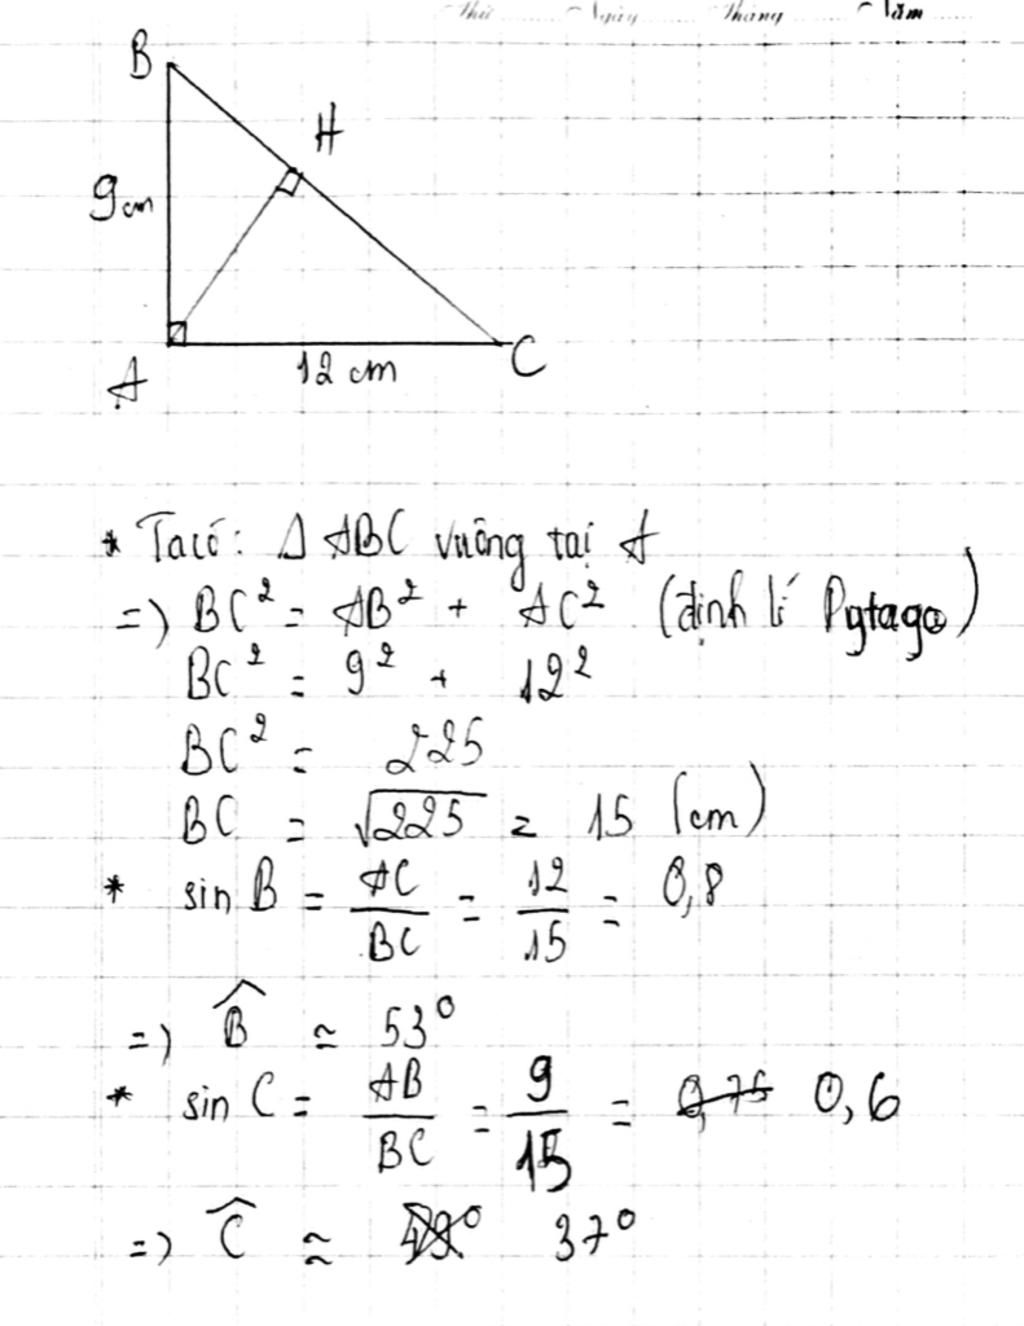 Thứ Ngày Tháng Năm
B
H
9cm
A
12 cm
C
* Ta có: Δ ABC vuông tại A
=) BC² = AB² + AC² (định lí Pytago)
BC² = 9² + 12²
BC² = 225
BC = √225 = 15 (cm)
* sin B = AC/BC = 12/15 = 0,8
=) B̂ ≃ 53°
* sin C = AB/BC = 9/15 = 0,75 0,6
=) Ĉ ≅ 37°